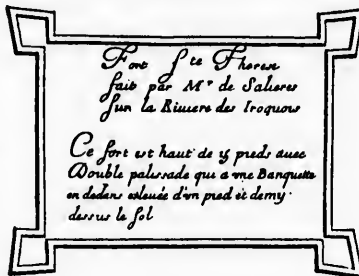 Fort Ste Therese
fait par Mr. de Salieres
sur la Riuiere des Iroquois
Ce fort est haut de 15 pieds auec
Double palissade qui a vne Banquette
en dedans esleuée d'vn pied et demy
dessus le sol